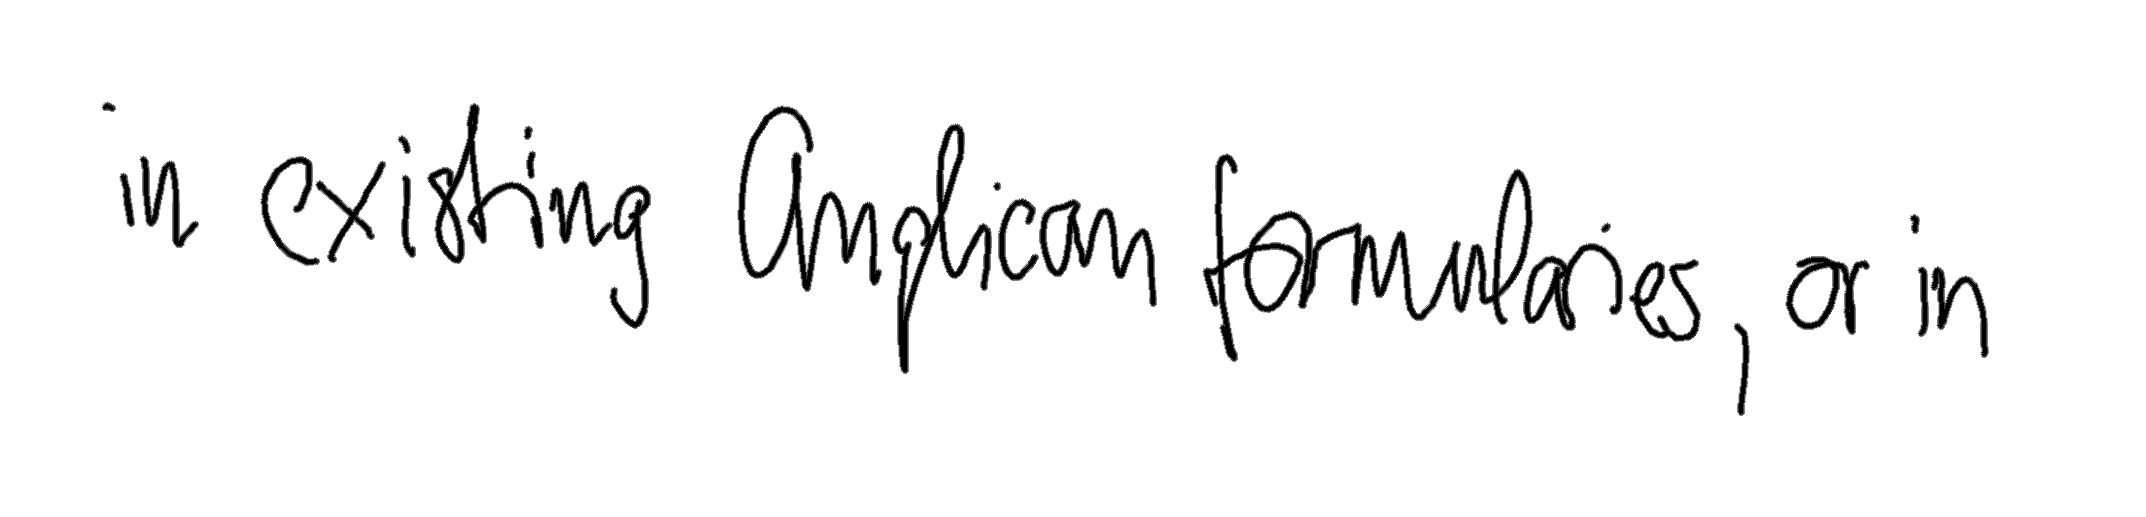 in existing Anglican formularies, or in